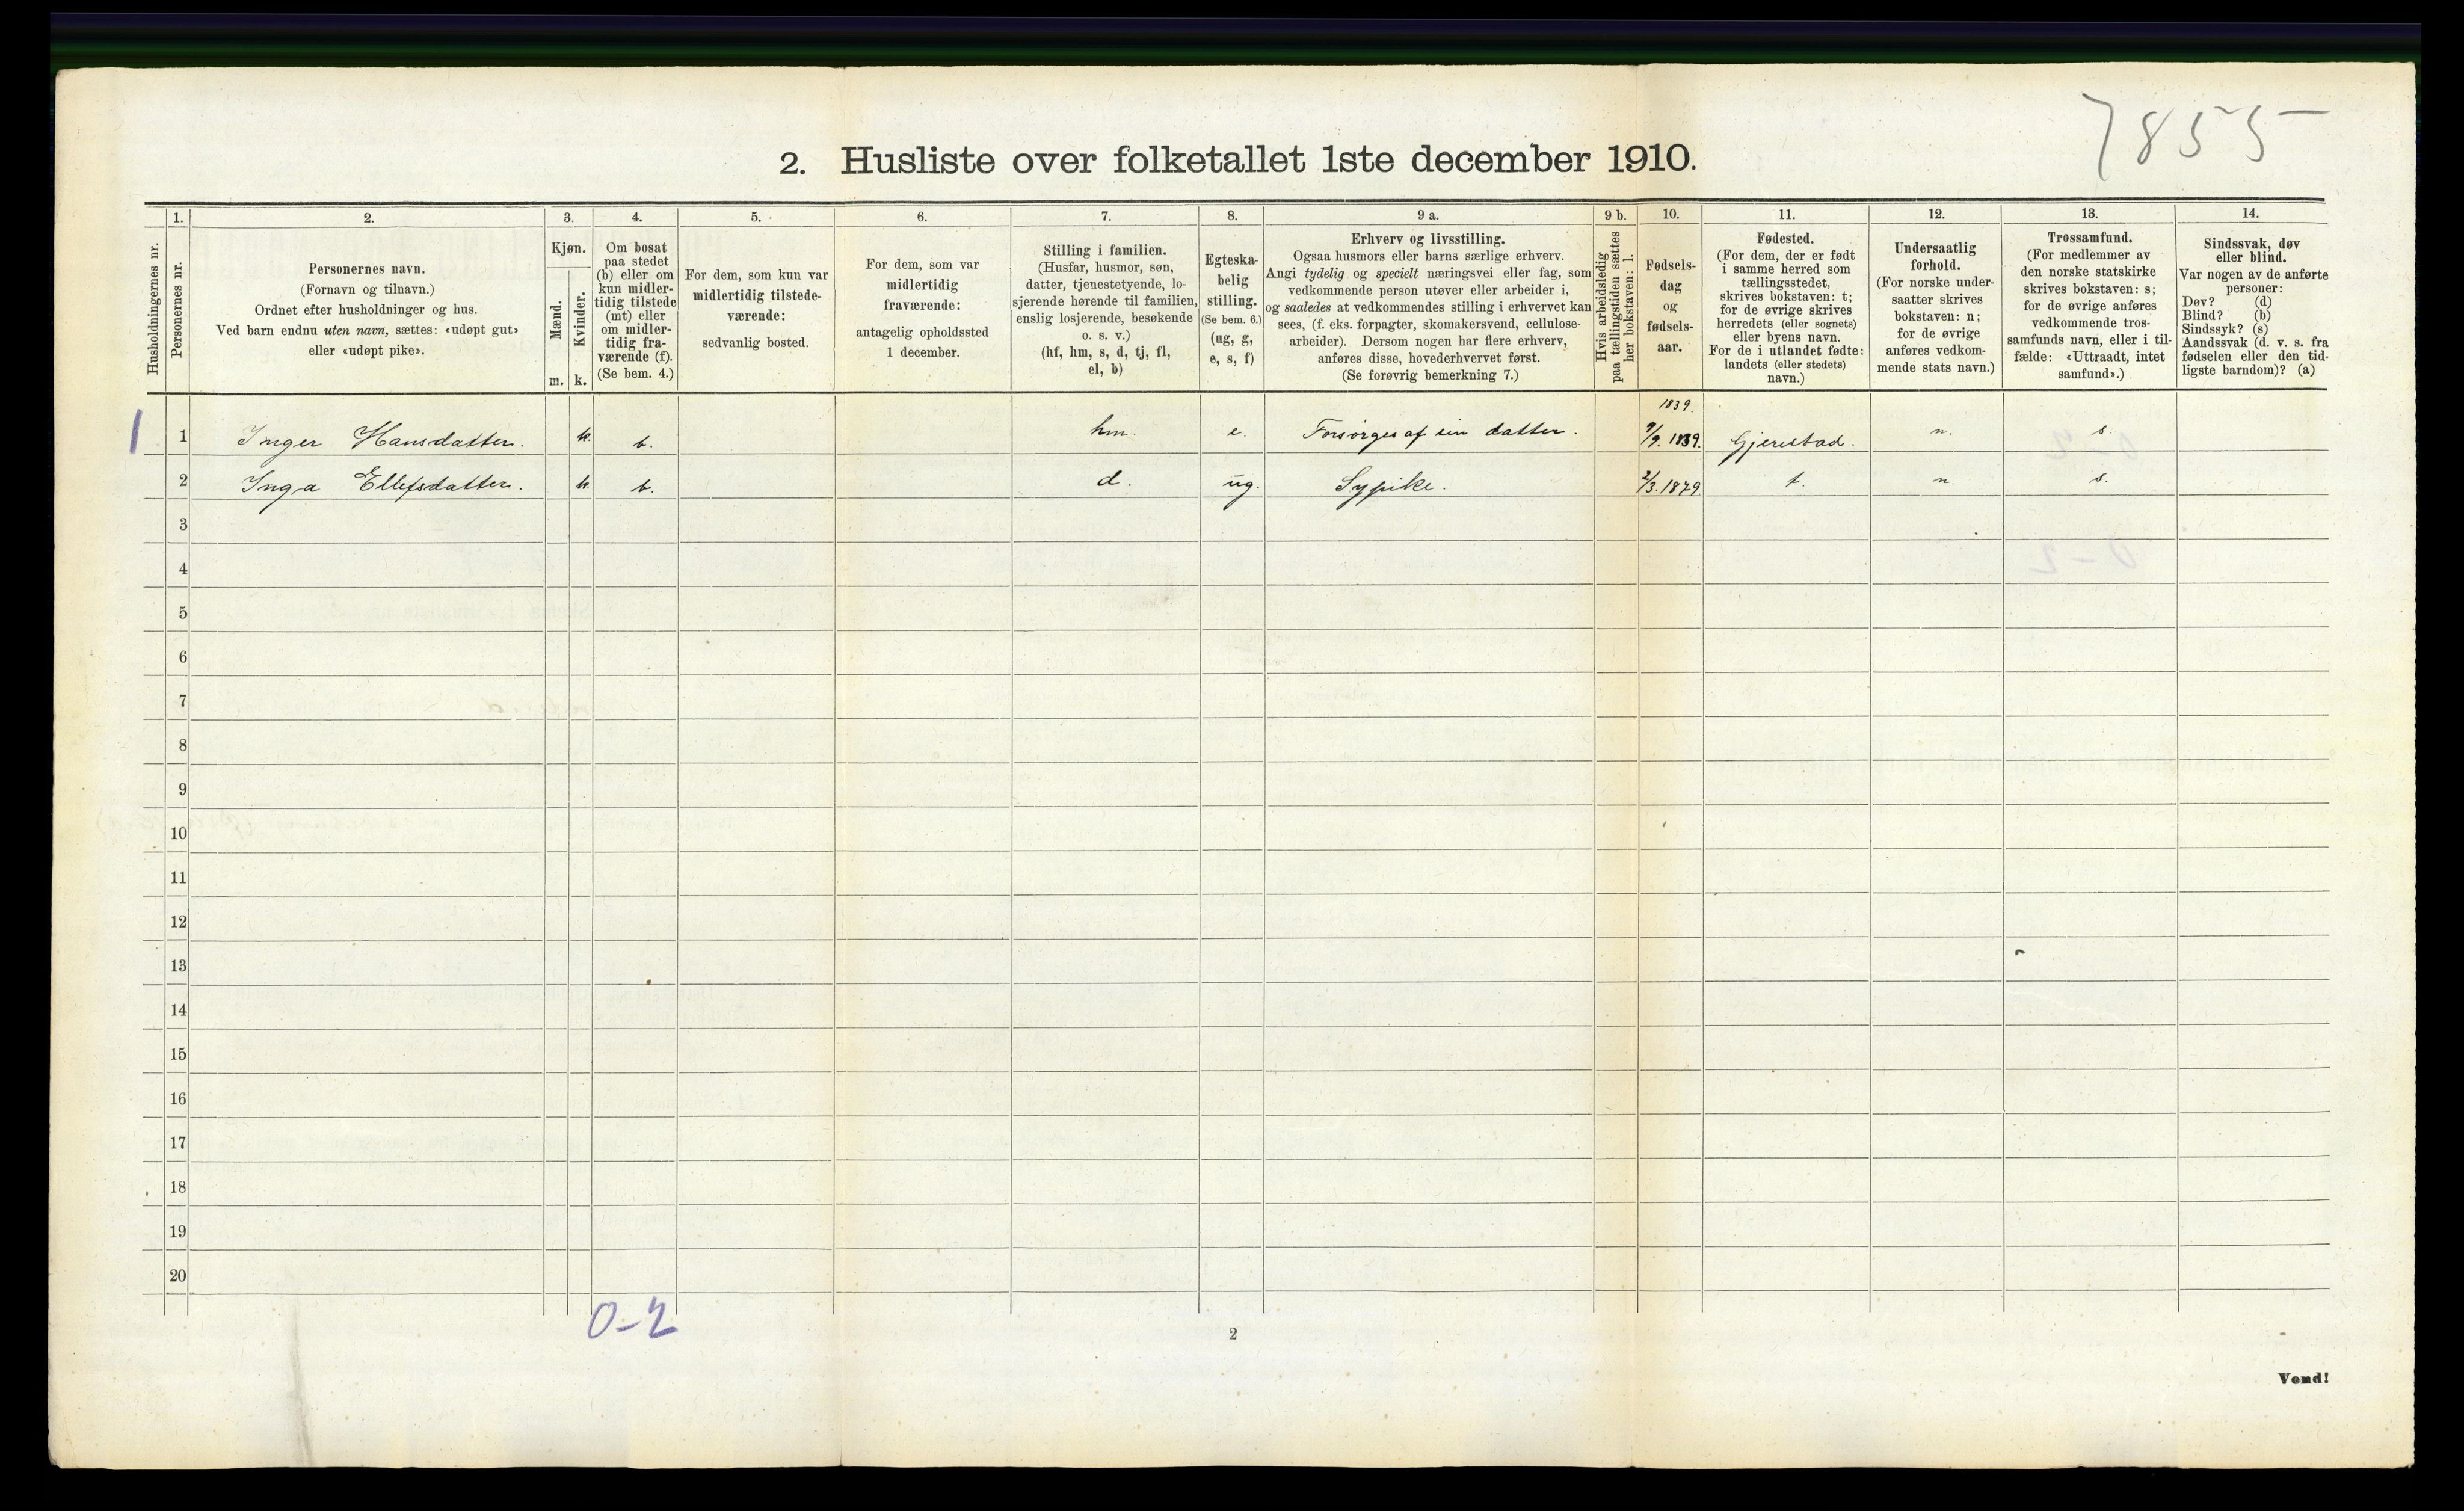 7855
2. Husliste over folketallet 1ste december 1910.
1. 2. 3. 4. 5. 6. 7. 8. 9 a. 9 b. 10. 11. 12. 13. 14.
Husholdningernes nr.
Personernes nr.
Personernes navn.
(Fornavn og tilnavn.)
Ordnet efter husholdninger og hus.
Ved barn endnu uten navn, sættes: «udøpt gut»
eller «udøpt pike».
Kjøn.
Mænd.
Kvinder.
m. k.
Om bosat
paa stedet
(b) eller om
kun midler-
tidig tilstede
(mt) eller
om midler-
tidig fra-
værende (f).
(Se bem. 4.)
For dem, som kun var
midlertidig tilstede-
værende:
sedvanlig bosted.
For dem, som var
midlertidig
fraværende:
antagelig opholdssted
1 december.
Stilling i familien.
(Husfar, husmor, søn,
datter, tjenestetyende, lo-
sjerende hørende til familien,
enslig losjerende, besøkende
o. s. v.)
(hf, hm, s, d, tj, fl,
el, b)
Egteska-
belig
stilling.
(Se bem. 6.)
(ug, g,
e, s, f)
Erhverv og livsstilling.
Ogsaa husmors eller barns særlige erhverv.
Angi tydelig og specielt næringsvei eller fag, som
vedkommende person utøver eller arbeider i,
og saaledes at vedkommendes stilling i erhvervet kan
sees, (f. eks. forpagter, skomakersvend, cellulose-
arbeider). Dersom nogen har flere erhverv,
anføres disse, hovederhvervet først.
(Se forøvrig bemerkning 7.)
Hvis arbeidsledig
paa tællingstiden sættes
her bokstaven: l.
Fødsels-
dag
og
fødsels-
aar.
Fødested.
(For dem, der er født
i samme herred som
tællingsstedet,
skrives bokstaven: t;
for de øvrige skrives
herredets (eller sognets)
eller byens navn.
For de i utlandet fødte:
landets (eller stedets)
navn.)
Undersaatlig
forhold.
(For norske under-
saatter skrives
bokstaven: n;
for de øvrige
anføres vedkom-
mende stats navn.)
Trossamfund.
(For medlemmer av
den norske statskirke
skrives bokstaven: s;
for de øvrige anføres
vedkommende tros-
samfunds navn, eller i til-
fælde: «Uttraadt, intet
samfund».)
Sindssvak, døv
eller blind.
Var nogen av de anførte
personer:
Døv? (d)
Blind? (b)
Sindssyk? (s)
Aandssvak (d. v. s. fra
fødselen eller den tid-
ligste barndom)? (a)
1839.
1 1 Inger Hansdatter. k. b. hm. e. Forsørges af sin datter. 9/9. 1839. Gjerestad. n. s.
2 Inga Ellefsdatter. k. b. d. ug. Sypike. 2/3. 1879. t. n. s.
3
4
5
6
7
8
9
10
11
12
13
14
15
16
17
18
19
20
0-2
2
Vend!